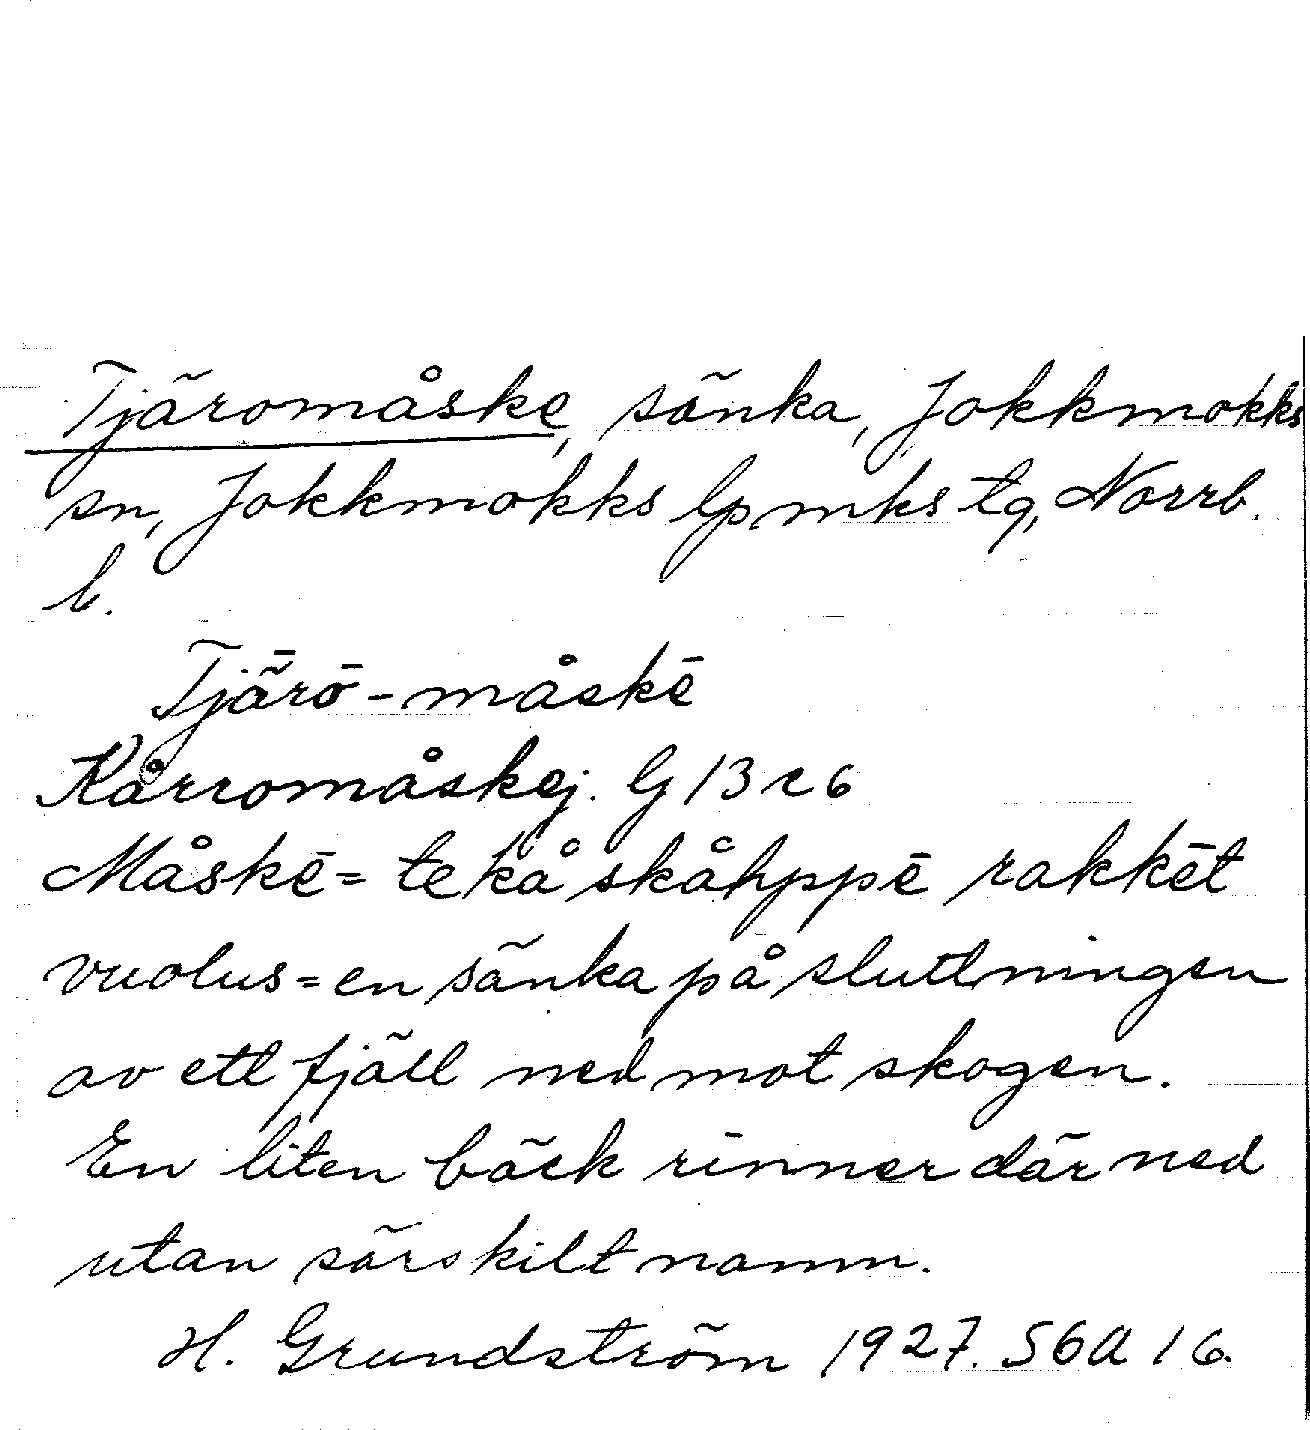 Tjäromåske, sänka, Jokkmokks
sn, Jokkmokks lpmks tg, Norrb.
l.
Tjǟrō-måskē
Kårromåskej. G 13 r 6
Måskē = tekå skåhppē rakkēt
vuolus = en sänka på sluttningen
av ett fjäll ned mot skogen.
En liten bäck rinner där ned
utan särskilt namn.
H. Grundström 1927. S6A 16.